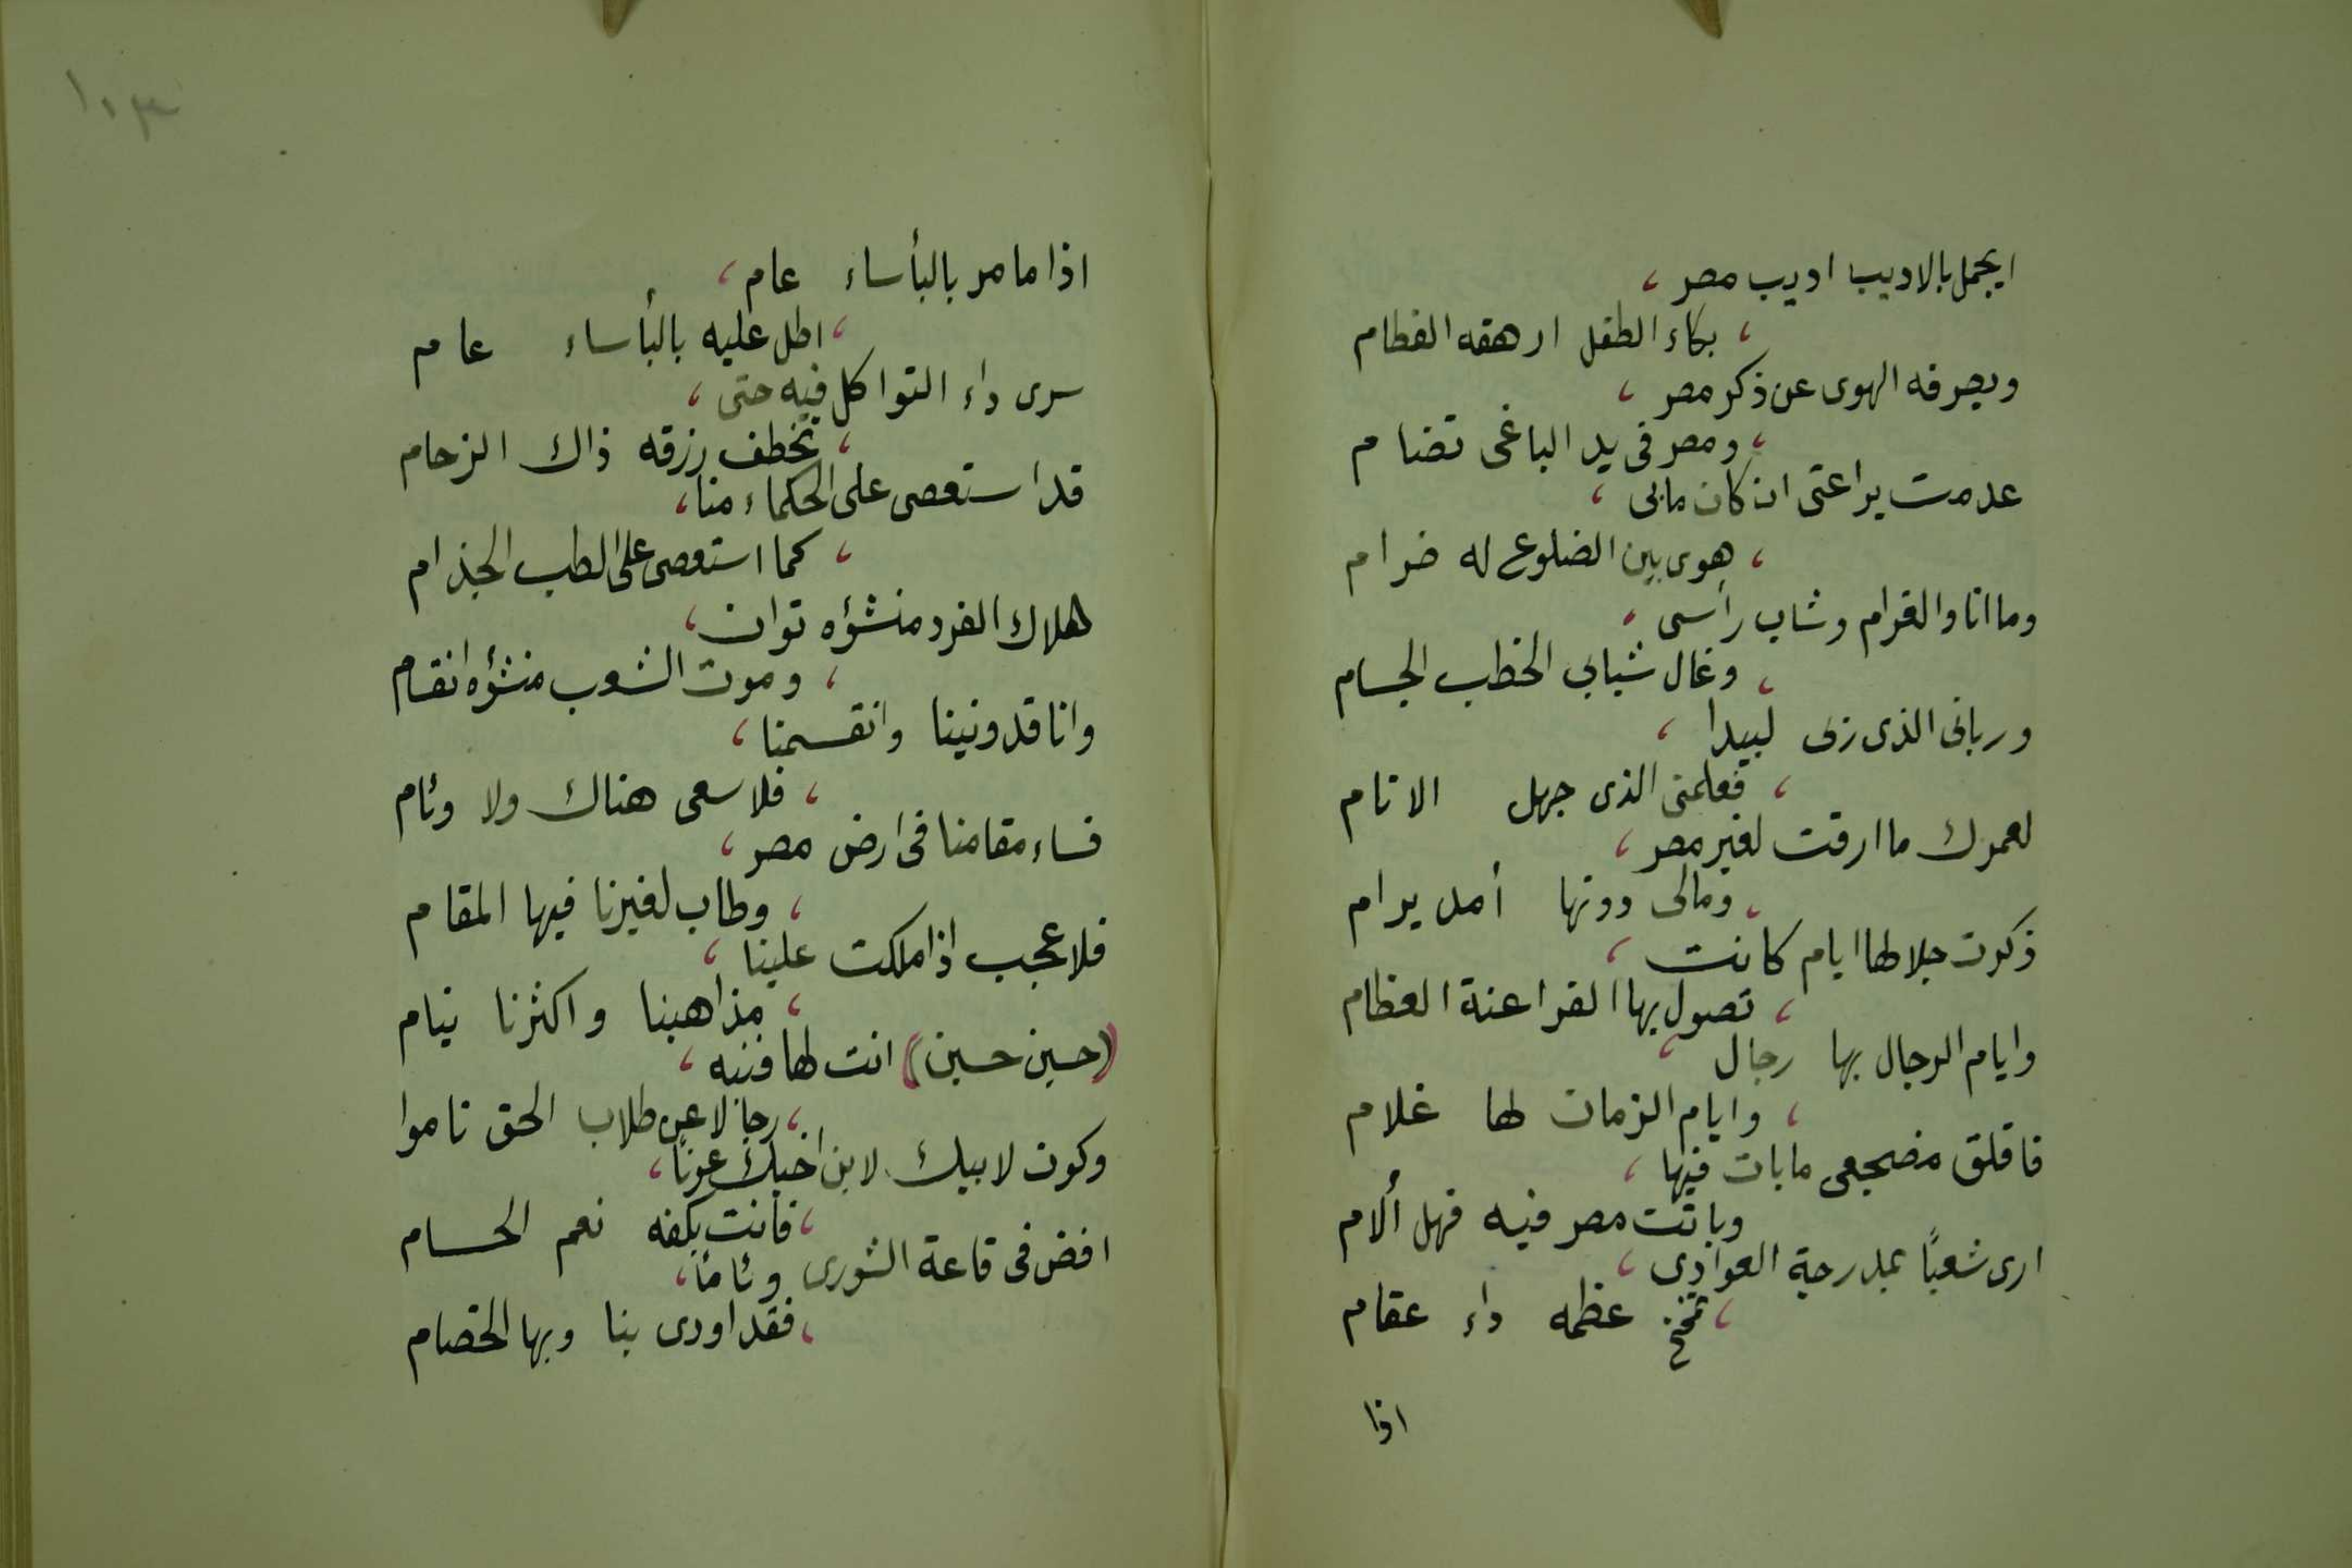 ايجمل بالاديب اديب مصر ،
، بكاء الطفل ارهقه الفطام
ويصرفه الهوى عن ذكر مصر ،
، ومصر فى يد الباغى تضام
عدمت يراعتى ان كان مابى ،
، هوى بين الضلوع له ضرام
وما انا والغرام وشاب رأسى ،
، وغال شبابى الخطب الجسام
وربانى الذى ربى لبيدا ،
، فعلمنى الذى جهل الانام
لعمرك ما ارقت لغير مصر ،
، ومالى دونها أمل يرام
ذكرت جلالها ايام كانت ،
، تصول بها الفراعنة العظام
وايام الرجال بها رجال ،
، وايام الزمان لها غلام
فاقلق مضجعى مابات فيها ،
وباتت مصر فيه فهل ألام
ارى شعبًا بمدرجة العوادى ،
، تمخخ عظمه داء عقام
اذا
١٠٣
اذا ما مر بالبأساء عام ،
، اطل عليه بالبأساء عام
سرى داء التواكل فيه حتى ،
، تخطف رزقه ذاك الزحام
قد استعصى على الحكماء منا ،
، كما استعصى على الطب الجذام
هلاك الفرد منشؤه توان ،
، وموت الشعب منشؤه انقسام
وانا قد ونينا وانقسمنا ،
، فلا سعى هناك ولا وئام
فساء مقامنا فى ارض مصر ،
، وطاب لغيرنا فيها المقام
فلا عجب اذا ملكت علينا ،
، مذاهبنا واكثرنا نيام
(حسين حسين) انت لها فنبه ،
، رجالا عن طلاب الحق ناموا
وكون لابيك لابن اخيك عونًا ،
، فانت بكفه نعم الحسام
افض فى قاعة الشورى وئامًا ،
، فقد اودى بنا وبها الخصام